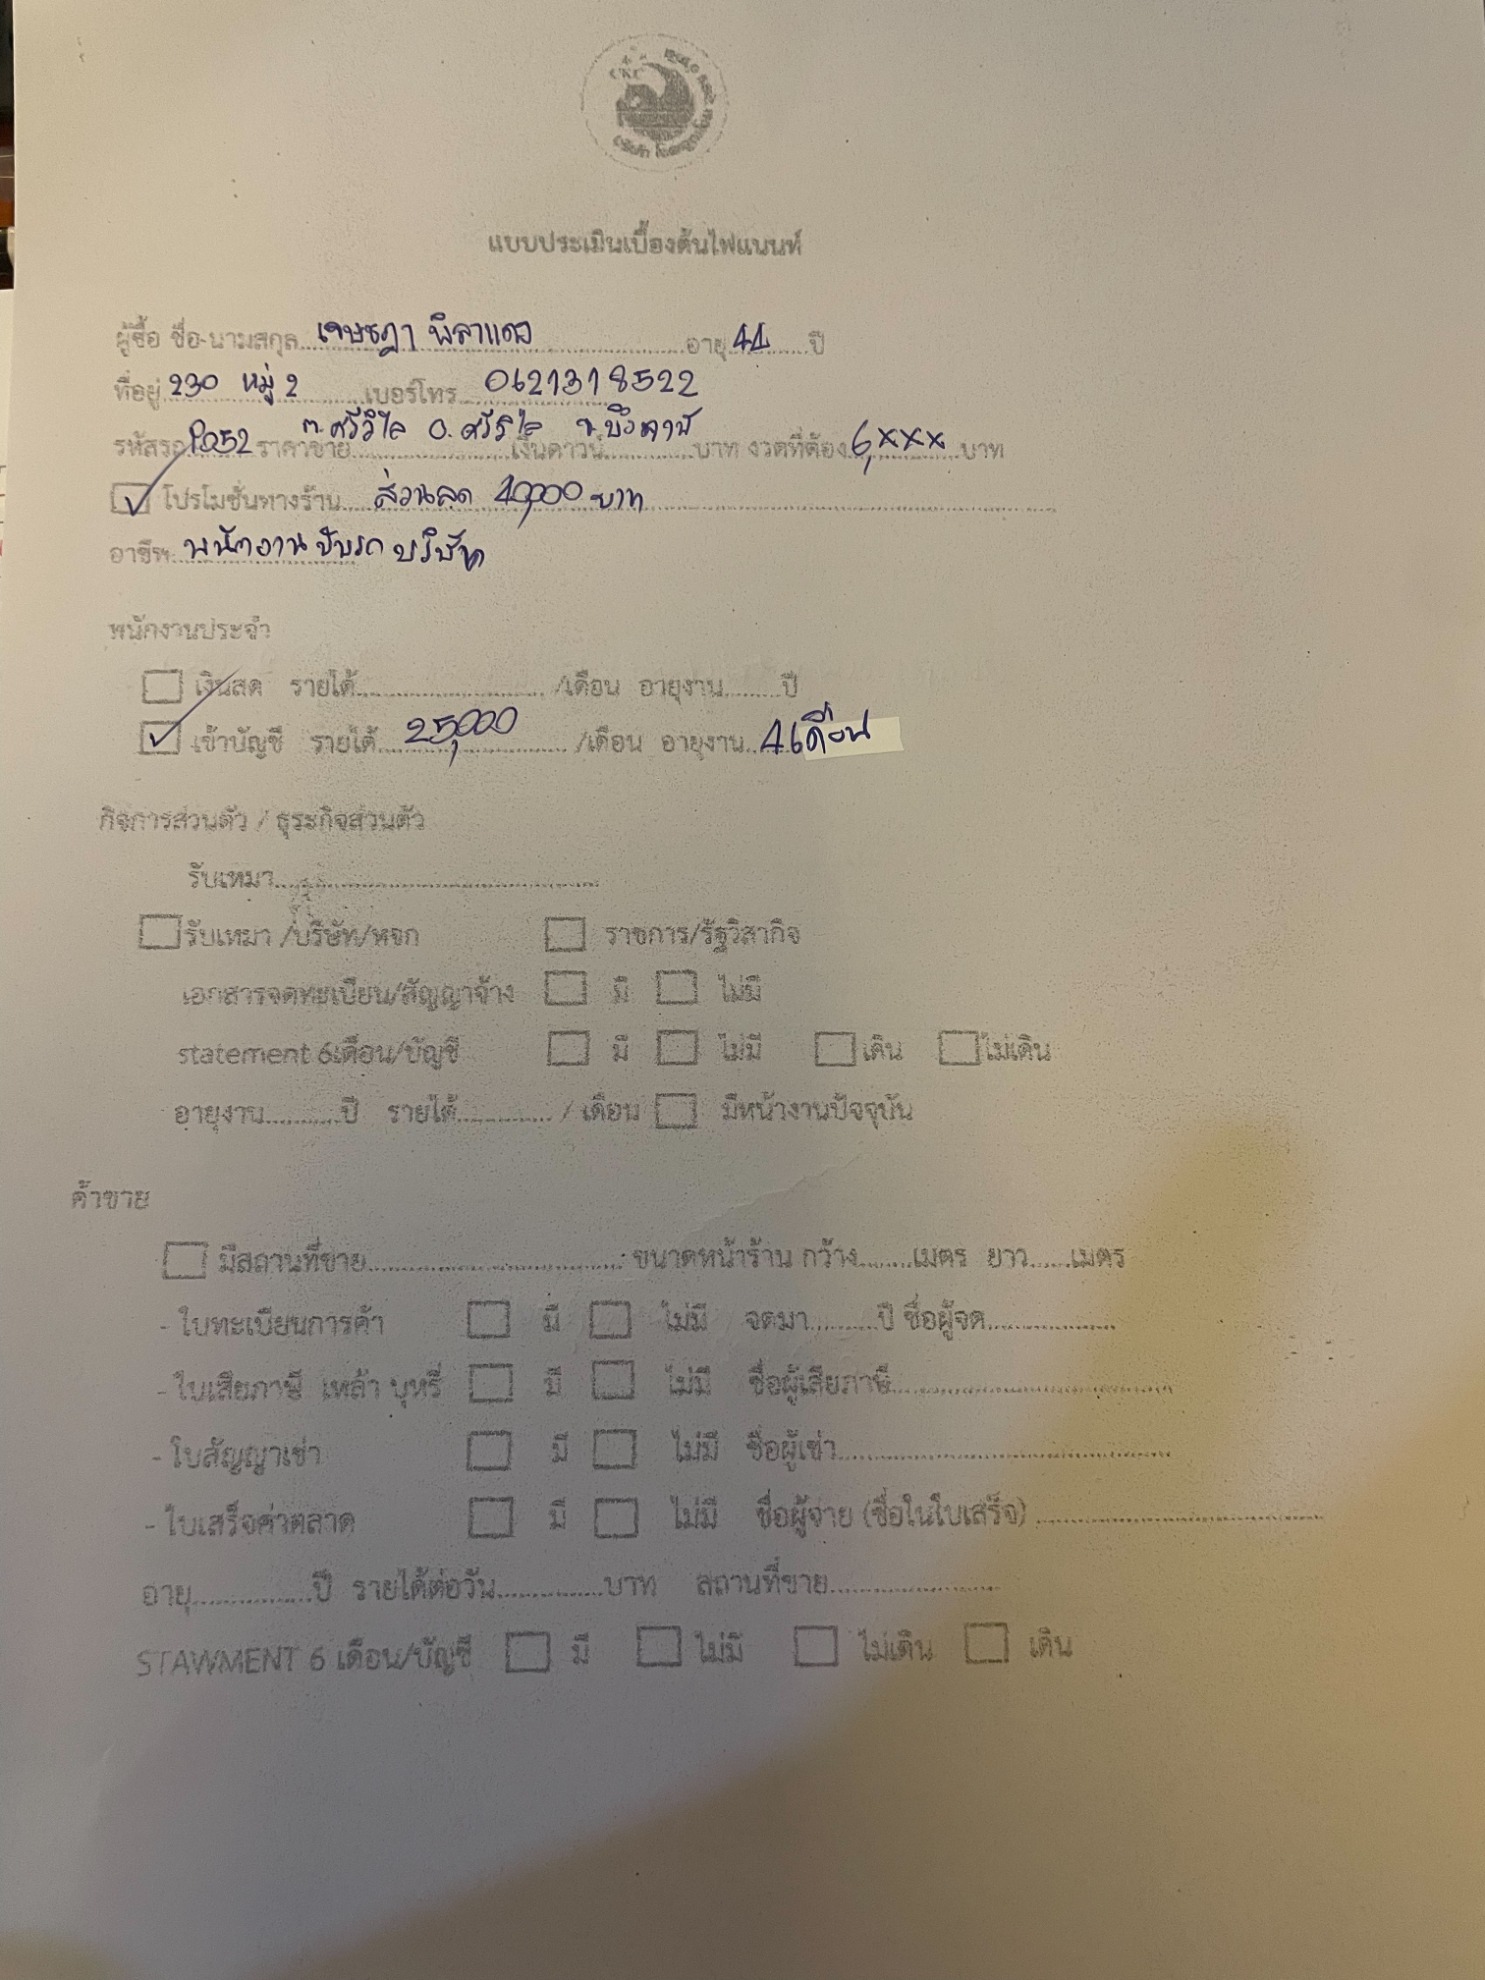 แบบประเมินเบื้องต้นไฟแนนท์
ผู้ซื้อ ชื่อ-นามสกุล เจษฎา พิลาแดง อายุ 44 ปี
ที่อยู่ 230 หมู่ 2 เบอร์โทร 0621318522
ต.ศรีวิไล อ.ศรีวิไล จ.บึงกาฬ
รหัสรถ P052 ราคาขาย เงินดาวน์ บาท งวดที่ต้อง 6,xxx บาท
โปรโมชั่นทางร้าน ส่วนลด 40,000 บาท
อาชีพ พนักงานขับรถ บริษัท
พนักงานประจำ
เงินสด รายได้ /เดือน อายุงาน ปี
เข้าบัญชี รายได้ 25,000 /เดือน อายุงาน 4 เดือน
กิจการส่วนตัว / ธุระกิจส่วนตัว
รับเหมา
รับเหมา /บริษัท/หจก ราชการ/รัฐวิสากิจ
เอกสารจดทะเบียน/สัญญาจ้าง มี ไม่มี
statement 6เดือน/บัญชี มี ไม่มี เดิน ไม่เดิน
อายุงาน ปี รายได้ / เดือน มีหน้างานปัจจุบัน
ค้าขาย
มีสถานที่ขาย ขนาดหน้าร้าน กว้าง เมตร ยาว เมตร
- ใบทะเบียนการค้า มี ไม่มี จดมา ปี ชื่อผู้จด
- ใบเสียภาษี เหล้า บุหรี่ มี ไม่มี ชื่อผู้เสียภาษี
- ใบสัญญาเช่า มี ไม่มี ชื่อผู้เช่า
- ใบเสร็จค่าตลาด มี ไม่มี ชื่อผู้จ่าย (ชื่อในใบเสร็จ)
อายุ ปี รายได้ต่อวัน บาท สถานที่ขาย
STAWMENT 6 เดือน/บัญชี มี ไม่มี ไม่เดิน เดิน